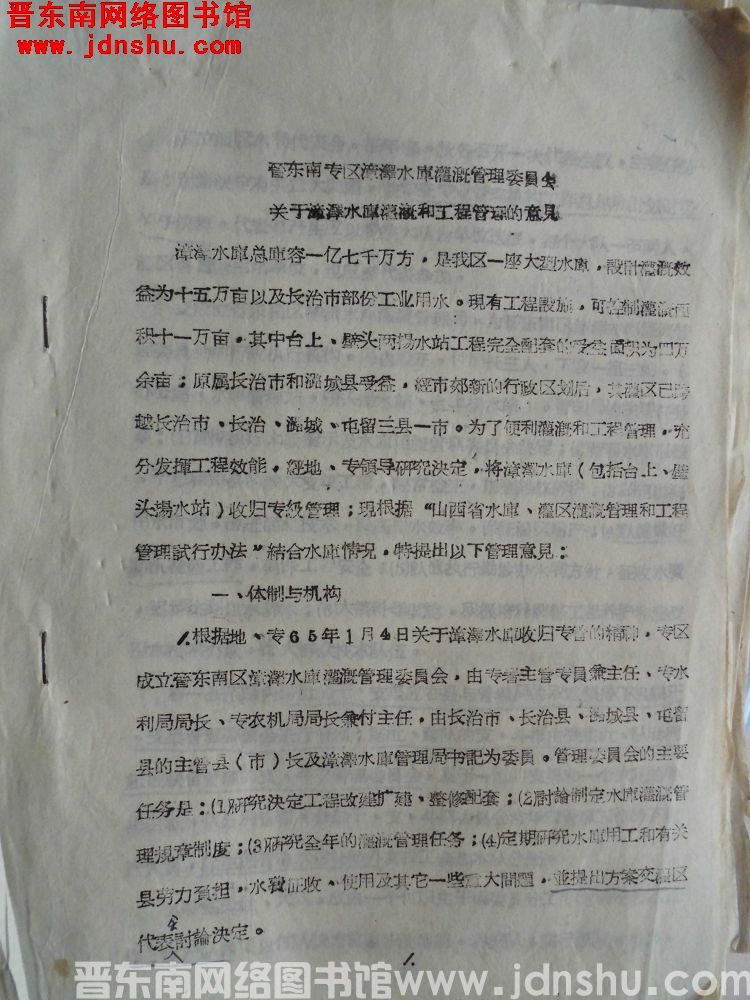 晋东南网络图书馆
www.jdnshu.com
晋东南专区漳澤水庫灌溉管理委員会
关于漳澤水庫灌溉和工程管理的意見
漳澤水庫总庫容一亿七千万方，是我区一座大型水庫，設計灌溉效
益为十五万亩以及长治市部份工业用水。現有工程設施，可控制灌溉面
积十一万亩，其中台上、壁头两揚水站工程完全配套的受益面积为四万
余亩；原属长治市和潞城县受益，經市郊新的行政区划后，其灌区已跨
越长治市、长治、潞城、屯留三县一市。为了便利灌溉和工程管理，充
分发揮工程效能，經地、专領导研究决定，将漳澤水庫（包括台上、壁
头揚水站）收归专級管理；現根据“山西省水庫、灌区灌溉管理和工程
管理試行办法”結合水庫情况，特提出以下管理意見：
一、体制与机构
1.根据地、专65年1月4日关于漳澤水庫收归专管的精神，专区
成立晋东南区漳澤水庫灌溉管理委員会，由专署主管专員兼主任、专水
利局局长、专农机局局长兼付主任，由长治市、长治县、潞城县、屯留
县的主管县（市）长及漳澤水庫管理局书記为委員。管理委員会的主要
任务是：(1)研究决定工程改建扩建、整修配套；(2)討論制定水庫灌溉管
理規章制度；(3)研究全年的灌溉管理任务；(4)定期研究水庫用工和有关
县劳力負担，水費征收、使用及其它一些重大問題，並提出方案交灌区
代表会討論决定。
1.
晋东南网络图书馆www.jdnshu.com